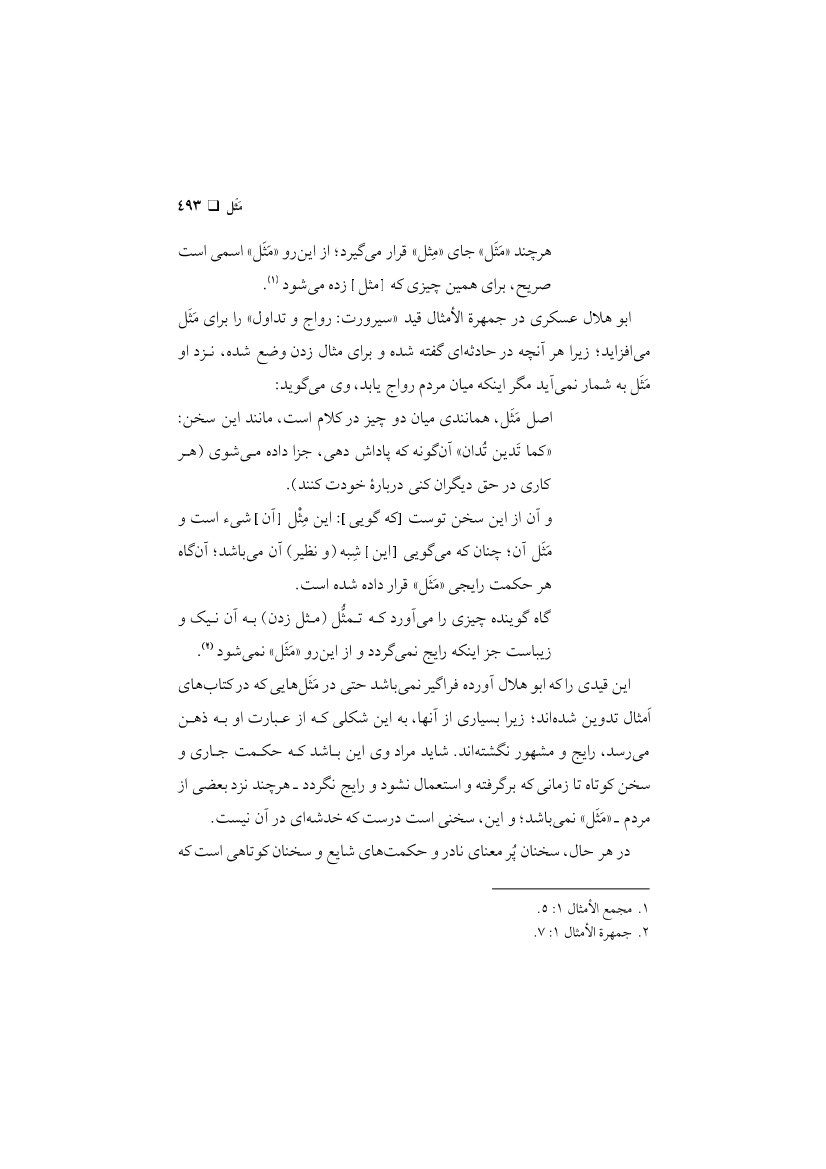 مَثَل ❑ ٤٩٣
هرچند «مَثَل» جای «مِثل» قرار می‌گیرد؛ از این‌رو «مَثَل» اسمی است
صریح، برای همین چیزی که [مثل] زده می‌شود (۱).
ابو هلال عسکری در جمهرة الأمثال قید «سیرورت: رواج و تداول» را برای مَثَل
می‌افزاید؛ زیرا هر آنچه در حادثه‌ای گفته شده و برای مثال زدن وضع شده، نـزد او
مَثَل به شمار نمی‌آید مگر اینکه میان مردم رواج یابد، وی می‌گوید:
اصل مَثَل، همانندی میان دو چیز در کلام است، مانند این سخن:
«کما تَدین تُدان» آن‌گونه که پاداش دهی، جزا داده مـی‌شوی (هـر
کاری در حق دیگران کنی دربارهٔ خودت کنند).
و آن از این سخن توست [که گویی]: این مِثْل [آن] شیء است و
مَثَل آن؛ چنان که می‌گویی [این] شِبه (و نظیر) آن می‌باشد؛ آن‌گاه
هر حکمت رایجی «مَثَل» قرار داده شده است.
گاه گوینده چیزی را می‌آورد کـه تـمثُّل (مـثل زدن) بـه آن نـیک و
زیباست جز اینکه رایج نمی‌گردد و از این‌رو «مَثَل» نمی‌شود (۲).
این قیدی را که ابو هلال آورده فراگیر نمی‌باشد حتی در مَثَل‌هایی که در کتاب‌های
اَمثال تدوین شده‌اند؛ زیرا بسیاری از آنها، به این شکلی کـه از عـبارت او بـه ذهـن
می‌رسد، رایج و مشهور نگشته‌اند. شاید مراد وی این بـاشد کـه حکـمت جـاری و
سخن کوتاه تا زمانی که برگرفته و استعمال نشود و رایج نگردد ـ هرچند نزد بعضی از
مردم ـ «مَثَل» نمی‌باشد؛ و این، سخنی است درست که خدشه‌ای در آن نیست.
در هر حال، سخنان پُر معنای نادر و حکمت‌های شایع و سخنان کوتاهی است که
۱. مجمع الأمثال ۱: ٥.
۲. جمهرة الأمثال ۱: ۷.